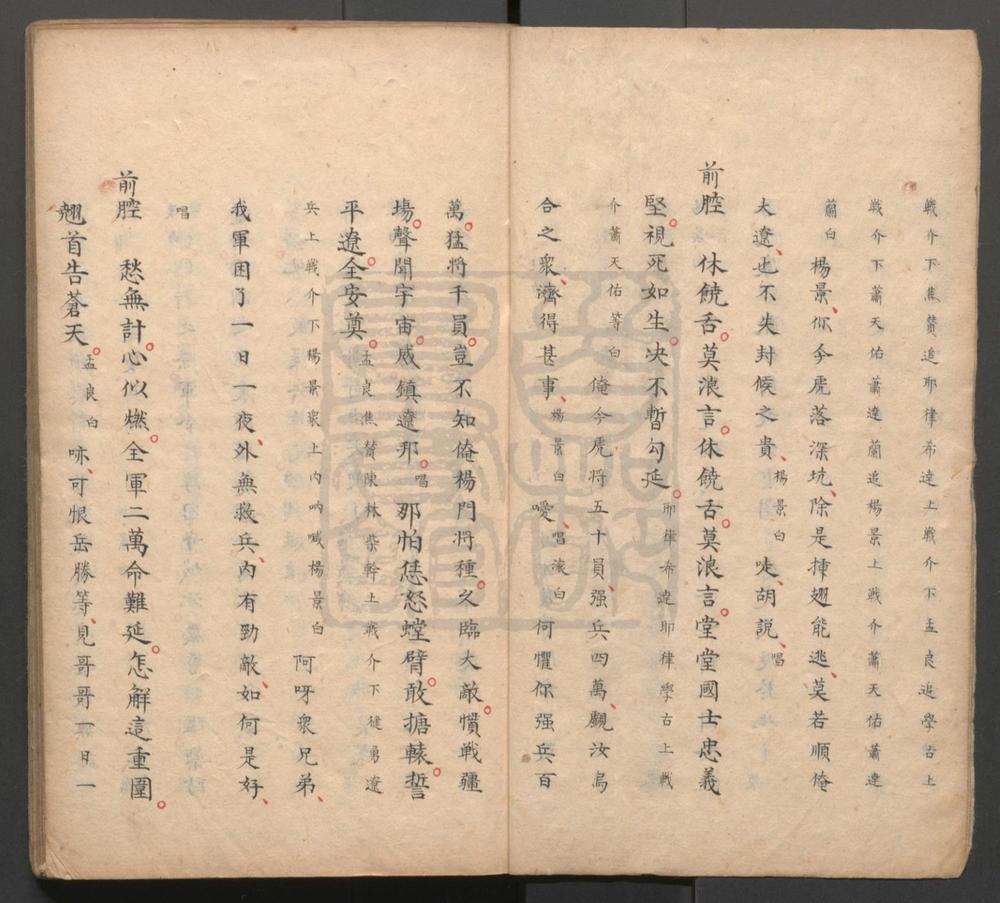 戰介下焦贊追耶律希達上戰介下孟良追學古上
戰介下蕭天佑蕭達蘭追楊景上戰介蕭天佑蕭達
蘭白 楊景、你今虎落深坑、除是揷翅能逃、莫若順俺
大遼、也不失封候之貴、楊景白 唗、胡說、唱
前腔 休饒舌。莫浪言。休饒舌。莫浪言。堂堂國士忠義
堅。視死如生。决不暫勾延。耶律希達耶律學古上戰
介蕭天佑等白 俺今虎將五十員、强兵四萬、覷汝烏
合之衆、濟得甚事、楊景白 噯、唱滚白 何懼你强兵百
萬。猛將千員。豈不知俺楊門將種。久臨大敵。慣戰疆
場。聲聞宇宙。威鎮遼邦。唱 那怕恁怒螳臂。敢搪轅。誓
平遼。全安奠。孟良焦贊陳林柴幹上戰介下健勇遼
兵上戰介下楊景衆上内吶喊楊景白 阿呀衆兄弟、
我軍困了一日一夜、外無救兵、内有勁敵、如何是好、
唱
前腔 愁無計。心似燃。全軍二萬命難延。怎解這重圍。
翹首告蒼天。孟良白 咏、可恨岳勝等、見哥哥一日一